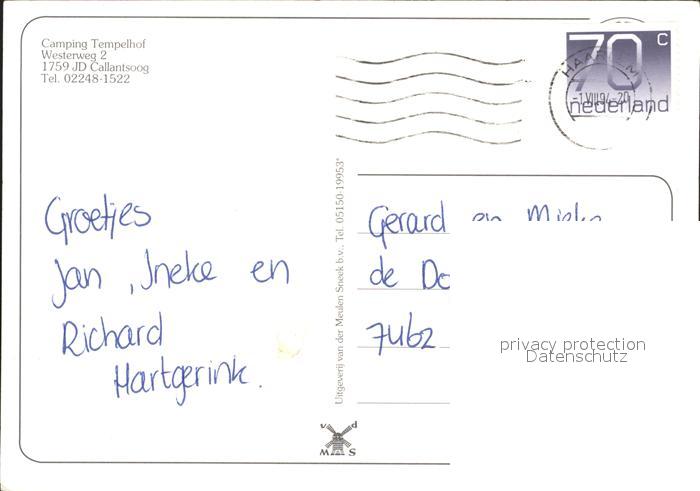 Camping Tempelhof
Westerweg 2
1759 JD Callantsoog
Tel. 02248-1522
70 c
nederland
-1.VIII.94-20
Groetjes
Jan , Ineke en
Richard
Hartgerink.
Uitgeverij van der Meulen Sneek b.v., Tel. 05150-19953*
v d
M S
Gerard en
de
privacy protection
Datenschutz